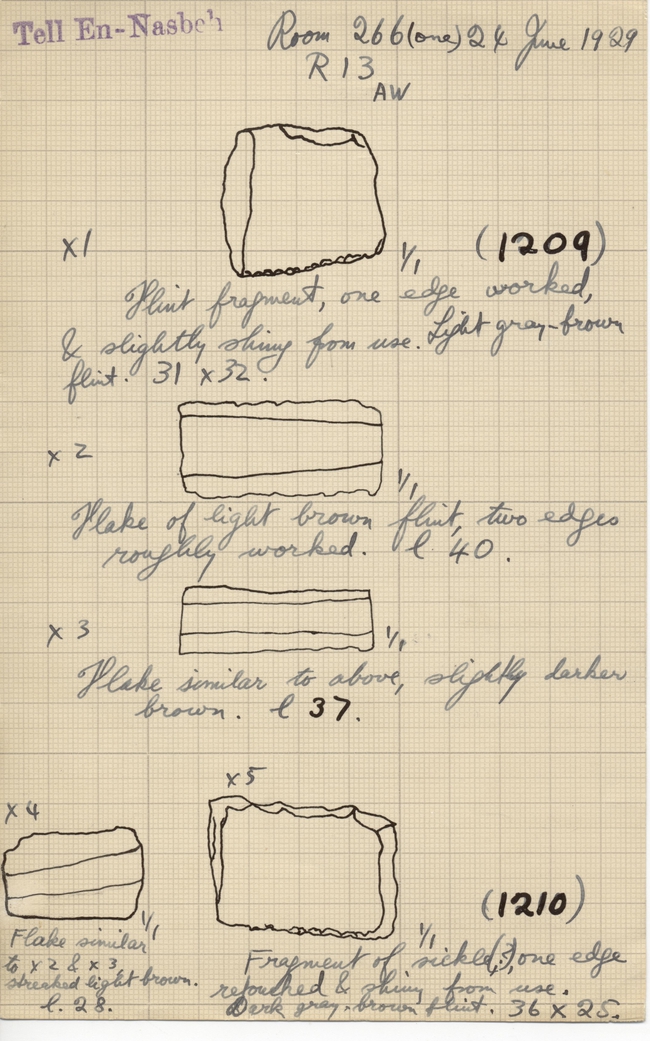 Tell En-Nasbeh
Room 266 (one) 24 June 1929
R 13
AW
x1
1/1
(1209)
Flint fragment, one edge worked,
& slightly shiny from use. Light gray-brown
flint. 31 x 32.
x 2
1/1
Flake of light brown flint, two edges
roughly worked. l 40.
x 3
1/1
Flake similar to above, slightly darker
brown. l 37.
x 4
x 5
1/1
1/1
(1210)
Flake similar
to x 2 & x 3,
streaked light brown.
l. 28.
Fragment of sickle(?), one edge
retouched & shiny from use.
Dark gray-brown flint. 36 x 25.